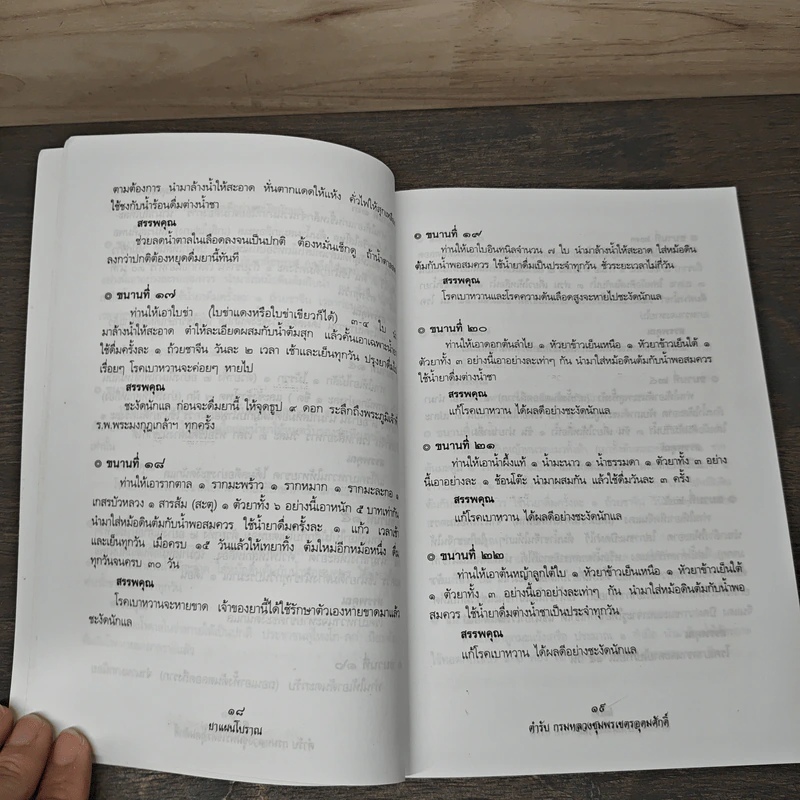 ตามต้องการ นำมาล้างน้ำให้สะอาด หั่นตากแดดให้แห้ง คั่วไฟให้
ใช้ชงกับน้ำร้อนดื่มต่างน้ำชา
สรรพคุณ
ช่วยลดน้ำตาลในเลือดลงจนเป็นปกติ ต้องหมั่นเช็กดู ถ้าน้ำตาล
ลงกว่าปกติต้องหยุดดื่มยานี้ทันที
๏ ขนานที่ ๑๗
ท่านให้เอาใบข่า (ใบข่าแดงหรือใบข่าเขียวก็ได้) ๓-๔ ใบ
มาล้างน้ำให้สะอาด ตำให้ละเอียดผสมกับน้ำต้มสุก แล้วคั้นเอาเฉพาะน้ำ
ใช้ดื่มครั้งละ ๑ ถ้วยชาจีน วันละ ๒ เวลา เช้าและเย็นทุกวัน ปรุงยาดื่ม
เรื่อยๆ โรคเบาหวานจะค่อยๆ หายไป
สรรพคุณ
ชะงัดนักแล ก่อนจะดื่มยานี้ ให้จุดธูป ๙ ดอก ระลึกถึงพระภูมิเจ้าที่
ร.พ.พระมงกุฎเกล้าฯ ทุกครั้ง
๏ ขนานที่ ๑๘
ท่านให้เอารากตาล ๑ รากมะพร้าว ๑ รากหมาก ๑ รากมะละกอ ๑
เกสรบัวหลวง ๑ สารส้ม (สะตุ) ๑ ตัวยาทั้ง ๖ อย่างนี้เอาหนัก ๕ บาทเท่ากัน
นำมาใส่หม้อดินต้มกับน้ำพอสมควร ใช้น้ำยาดื่มครั้งละ ๑ แก้ว เวลาเช้า
และเย็นทุกวัน เมื่อครบ ๑๕ วันแล้วให้เทยาทิ้ง ต้มใหม่อีกหม้อหนึ่ง ดื่ม
ทุกวันจนครบ ๓๐ วัน
สรรพคุณ
โรคเบาหวานจะหายขาด เจ้าของยานี้ได้ใช้รักษาตัวเองหายขาดมาแล้ว
ชะงัดนักแล
๑๘
ยาแผนโบราณ
๏ ขนานที่ ๑๙
ท่านให้เอาใบอินทนิลจำนวน ๗ ใบ นำมาล้างน้ำให้สะอาด ใส่หม้อดิน
ต้มกับน้ำพอสมควร ใช้น้ำยาดื่มเป็นประจำทุกวัน ชั่วระยะเวลาไม่กี่วัน
สรรพคุณ
โรคเบาหวานและโรคความดันเลือดสูงจะหายไปชะงัดนักแล
๏ ขนานที่ ๒๐
ท่านให้เอาดอกต้นลำไย ๑ หัวยาข้าวเย็นเหนือ ๑ หัวยาข้าวเย็นใต้ ๑
ตัวยาทั้ง ๓ อย่างนี้เอาอย่างละเท่าๆ กัน นำมาใส่หม้อดินต้มกับน้ำพอสมควร
ใช้น้ำยาดื่มต่างน้ำชา
สรรพคุณ
แก้โรคเบาหวาน ได้ผลดีอย่างชะงัดนักแล
๏ ขนานที่ ๒๑
ท่านให้เอาน้ำผึ้งแท้ ๑ น้ำมะนาว ๑ น้ำธรรมดา ๑ ตัวยาทั้ง ๓ อย่าง
นี้เอาอย่างละ ๑ ช้อนโต๊ะ นำมาผสมกัน แล้วใช้ดื่มวันละ ๓ ครั้ง
สรรพคุณ
แก้โรคเบาหวาน ได้ผลดีอย่างชะงัดนักแล
๏ ขนานที่ ๒๒
ท่านให้เอาต้นหญ้าลูกใต้ใบ ๑ หัวยาข้าวเย็นเหนือ ๑ หัวยาข้าวเย็นใต้
๑ ตัวยาทั้ง ๓ อย่างนี้เอาอย่างละเท่าๆ กัน นำมาใส่หม้อดินต้มกับน้ำพอ
สมควร ใช้น้ำยาดื่มต่างน้ำชาเป็นประจำทุกวัน
สรรพคุณ
แก้โรคเบาหวาน ได้ผลดีอย่างชะงัดนักแล
๑๙
ตำรับ กรมหลวงชุมพรเขตรอุดมศักดิ์